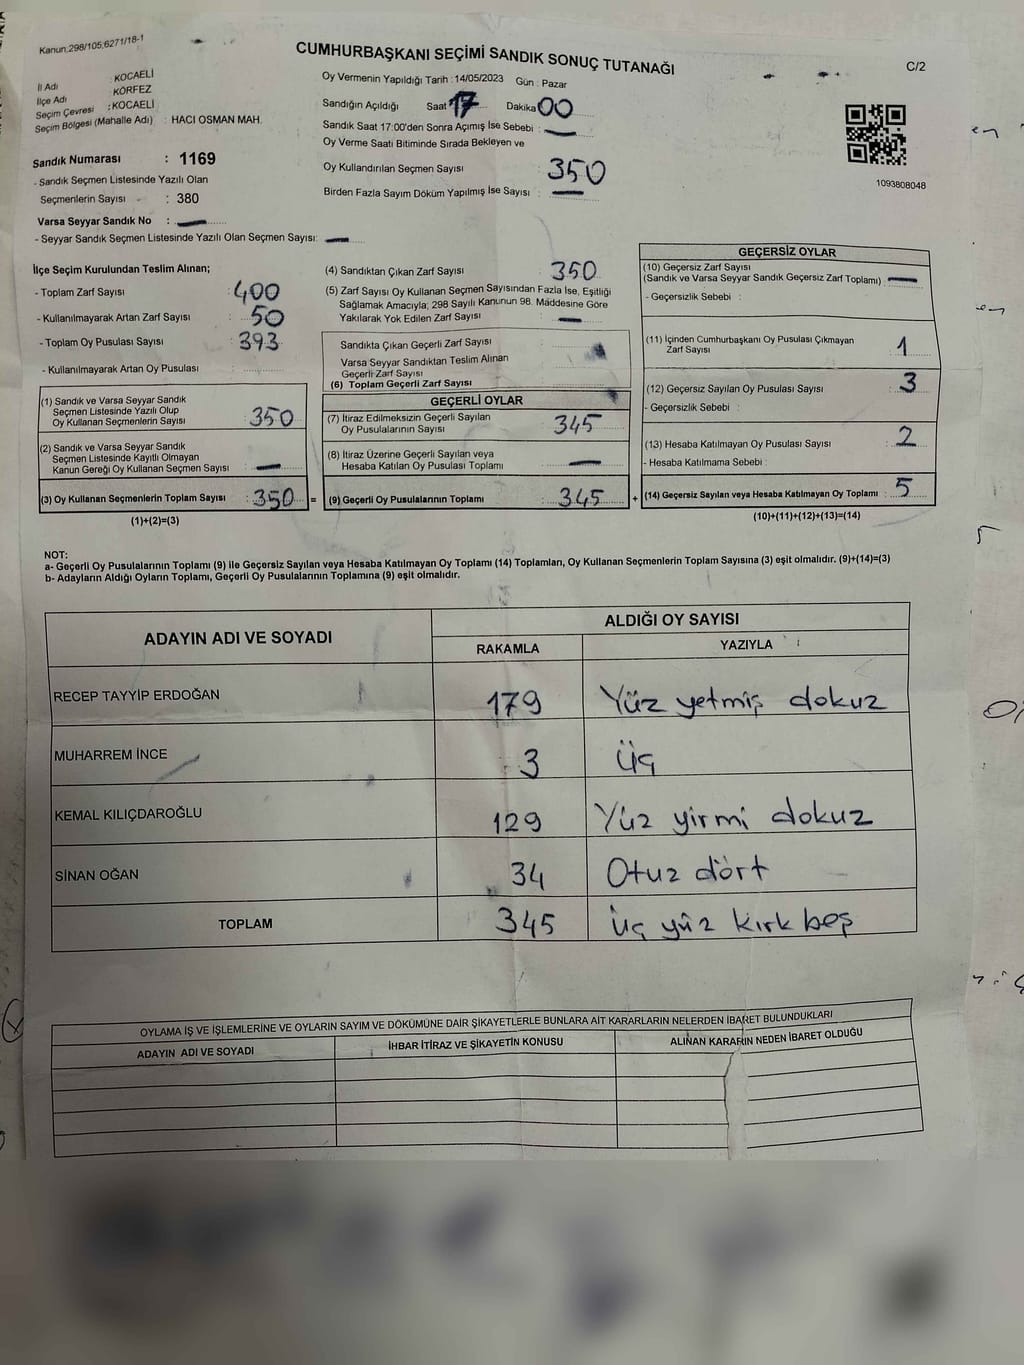 Kanun:298/105,6271/18-1
CUMHURBAŞKANI SEÇİMİ SANDIK SONUÇ TUTANAĞI
C/2
İl Adı : KOCAELİ
İlçe Adı : KÖRFEZ
Seçim Çevresi : KOCAELİ
Seçim Bölgesi (Mahalle Adı) : HACI OSMAN MAH.
Oy Vermenin Yapıldığı Tarih : 14/05/2023 Gün : Pazar
Sandığın Açıldığı Saat 17 Dakika 00
Sandık Saat 17:00'den Sonra Açımış İse Sebebi : —
Oy Verme Saati Bitiminde Sırada Bekleyen ve
Oy Kullandırılan Seçmen Sayısı 350
Birden Fazla Sayım Döküm Yapılmış İse Sayısı : —
1093808048
Sandık Numarası : 1169
- Sandık Seçmen Listesinde Yazılı Olan
Seçmenlerin Sayısı : 380
Varsa Seyyar Sandık No : —
- Seyyar Sandık Seçmen Listesinde Yazılı Olan Seçmen Sayısı: —
İlçe Seçim Kurulundan Teslim Alınan;
- Toplam Zarf Sayısı : 400
- Kullanılmayarak Artan Zarf Sayısı : 50
- Toplam Oy Pusulası Sayısı : 393
- Kullanılmayarak Artan Oy Pusulası :
(1) Sandık ve Varsa Seyyar Sandık
Seçmen Listesinde Yazılı Olup
Oy Kullanan Seçmenlerin Sayısı : 350
(2) Sandık ve Varsa Seyyar Sandık
Seçmen Listesinde Kayıtlı Olmayan
Kanun Gereği Oy Kullanan Seçmen Sayısı : —
(3) Oy Kullanan Seçmenlerin Toplam Sayısı : 350 =
(1)+(2)=(3)
(4) Sandıktan Çıkan Zarf Sayısı : 350
(5) Zarf Sayısı Oy Kullanan Seçmen Sayısından Fazla İse, Eşitliği
Sağlamak Amacıyla; 298 Sayılı Kanunun 98. Maddesine Göre
Yakılarak Yok Edilen Zarf Sayısı : —
Sandıkta Çıkan Geçerli Zarf Sayısı :
Varsa Seyyar Sandıktan Teslim Alınan
Geçerli Zarf Sayısı :
(6) Toplam Geçerli Zarf Sayısı :
GEÇERLİ OYLAR
(7) İtiraz Edilmeksizin Geçerli Sayılan
Oy Pusulalarının Sayısı : 345
(8) İtiraz Üzerine Geçerli Sayılan veya
Hesaba Katılan Oy Pusulası Toplamı : —
(9) Geçerli Oy Pusulalarının Toplamı : 345 +
GEÇERSİZ OYLAR
(10) Geçersiz Zarf Sayısı
(Sandık ve Varsa Seyyar Sandık Geçersiz Zarf Toplamı) : —
- Geçersizlik Sebebi :
(11) İçinden Cumhurbaşkanı Oy Pusulası Çıkmayan
Zarf Sayısı : 1
(12) Geçersiz Sayılan Oy Pusulası Sayısı : 3
- Geçersizlik Sebebi :
(13) Hesaba Katılmayan Oy Pusulası Sayısı : 2
- Hesaba Katılmama Sebebi :
(14) Geçersiz Sayılan veya Hesaba Katılmayan Oy Toplamı : 5
(10)+(11)+(12)+(13)=(14)
NOT:
a- Geçerli Oy Pusulalarının Toplamı (9) ile Geçersiz Sayılan veya Hesaba Katılmayan Oy Toplamı (14) Toplamları, Oy Kullanan Seçmenlerin Toplam Sayısına (3) eşit olmalıdır. (9)+(14)=(3)
b- Adayların Aldığı Oyların Toplamı, Geçerli Oy Pusulalarının Toplamına (9) eşit olmalıdır.
ADAYIN ADI VE SOYADI
ALDIĞI OY SAYISI
RAKAMLA YAZIYLA
RECEP TAYYİP ERDOĞAN 179 Yüz yetmiş dokuz
MUHARREM İNCE 3 üç
KEMAL KILIÇDAROĞLU 129 Yüz yirmi dokuz
SİNAN OĞAN 34 Otuz dört
TOPLAM 345 üç yüz kırk beş
OYLAMA İŞ VE İŞLEMLERİNE VE OYLARIN SAYIM VE DÖKÜMÜNE DAİR ŞİKAYETLERLE BUNLARA AİT KARARLARIN NELERDEN İBARET BULUNDUKLARI
ADAYIN ADI VE SOYADI İHBAR İTİRAZ VE ŞİKAYETİN KONUSU ALINAN KARARIN NEDEN İBARET OLDUĞU